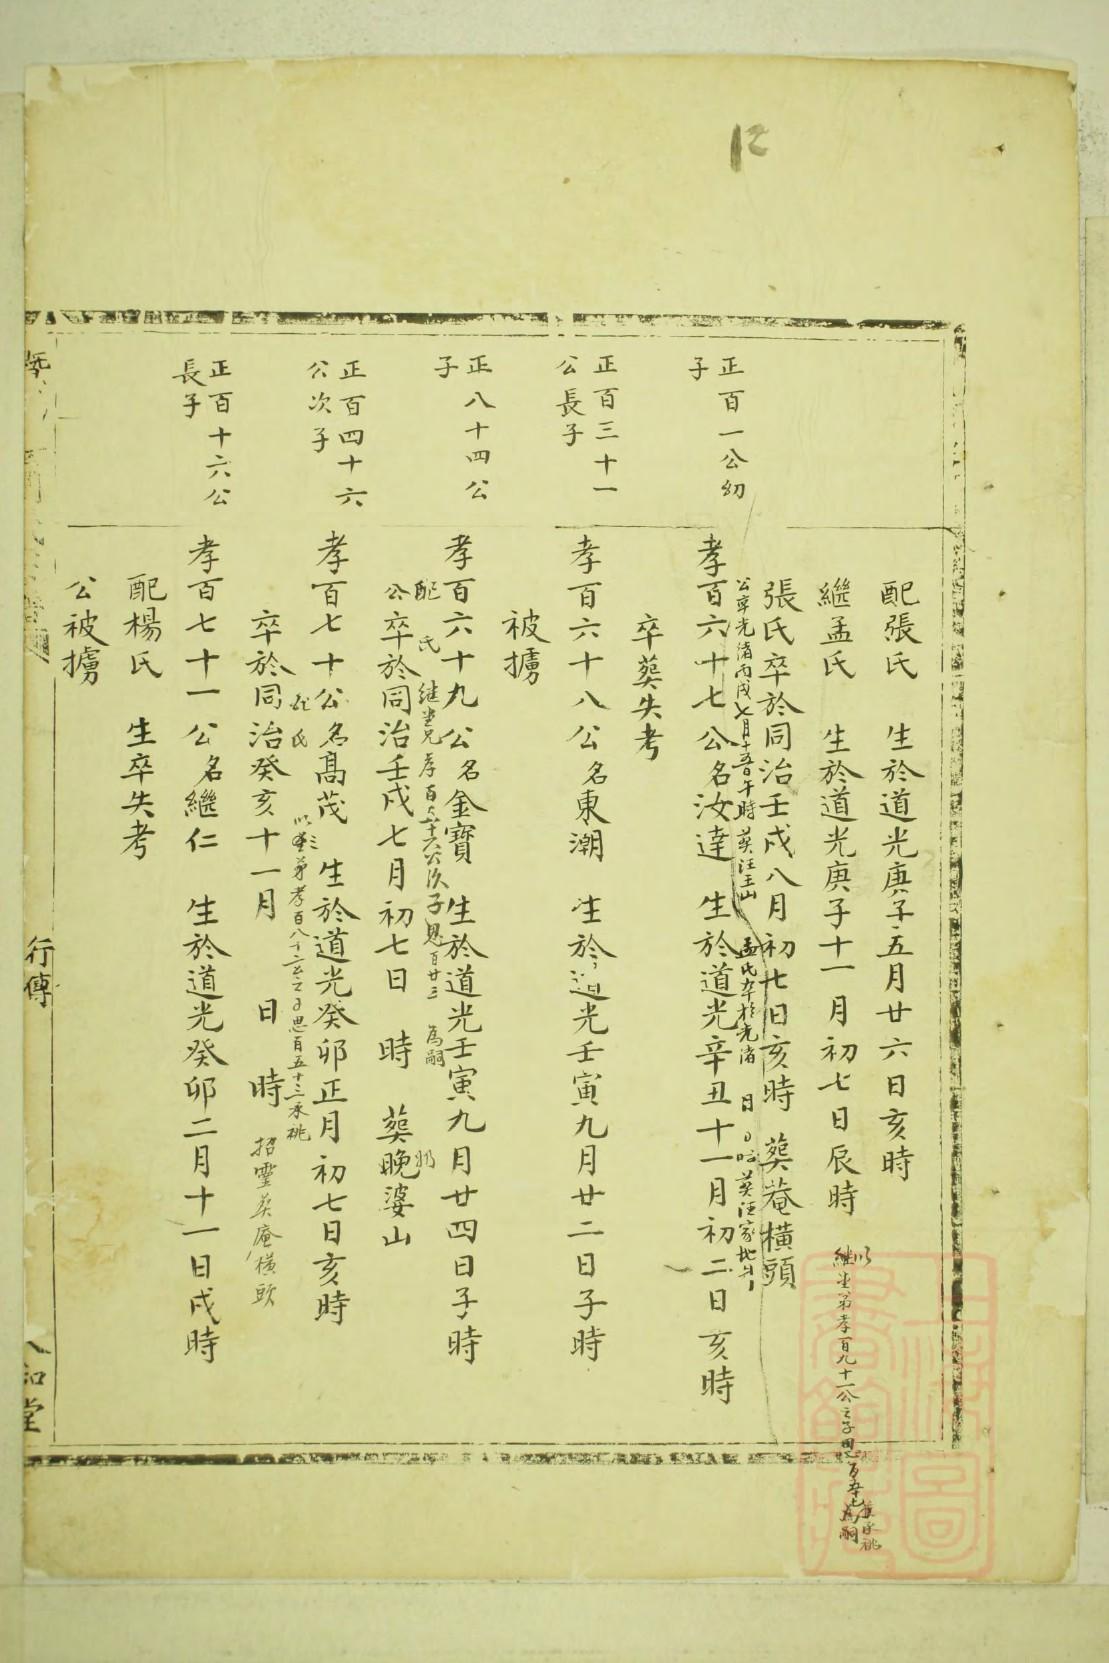 12
配張氏 生於道光庚子五月廿六日亥時
繼孟氏 生於道光庚子十一月初七日辰時
以繼堂弟孝百九十一公之子思百
為嗣
承祧
張氏卒於同治壬戌八月初七日亥時 葬菴橫頭
公卒光緒丙戌七月十五日午時葬汪王山
孟氏卒於光緒 日 時葬汪家地
正百一公幼
子
孝百六十七公名汝達 生於道光辛丑十一月初二日亥時
卒葬失考
正百三十一
公長子
孝百六十八公名東潮 生於道光壬寅九月廿二日子時
被擄
正八十四公
子
孝百六十九公名金寶 生於道光壬寅九月廿四日子時
配 氏 繼堂兄孝百六十六公次子思百廿三 為嗣
公卒於同治壬戌七月初七日 時 葬晚婆山
正百四十六
公次子
孝百七十公名高茂 生於道光癸卯正月初七日亥時
配氏 以堂弟孝百八十二公之子思百五十三承祧
卒於同治癸亥十一月 日 時 招靈葬庵橫頭
正百十六公
長子
孝百七十一公名繼仁 生於道光癸卯二月十一日戌時
配楊氏 生卒失考
公被擄
行傳
和堂